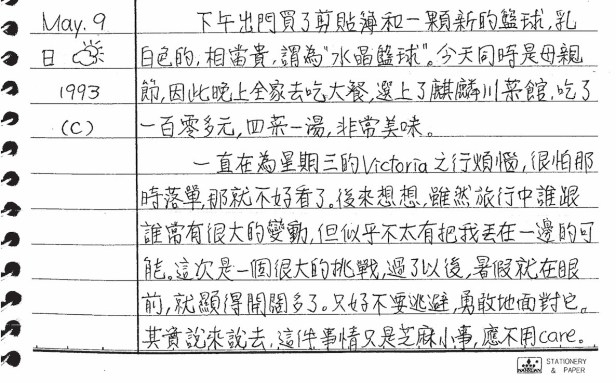 May. 9 下午出門買了剪貼簿和一顆新的籃球,乳
日 白色的,相當貴,謂為"水晶籃球"。今天同時是母親
1993 節,因此晚上全家去吃大餐,選上了麒麟川菜館,吃了
(C) 一百零多元,四菜一湯,非常美味。
一直在為星期三的Victoria之行煩惱,很怕那
時落單,那就不好看了。後來想想,雖然旅行中誰跟
誰常有很大的變動,但似乎不太有把我丟在一邊的可
能。這次是一個很大的挑戰,過了以後,暑假就在眼
前,就顯得開闊多了。只好不要逃避,勇敢地面對它。
其實說來說去,這件事情又是芝麻小事,應不用care。
STATIONERY
& PAPER